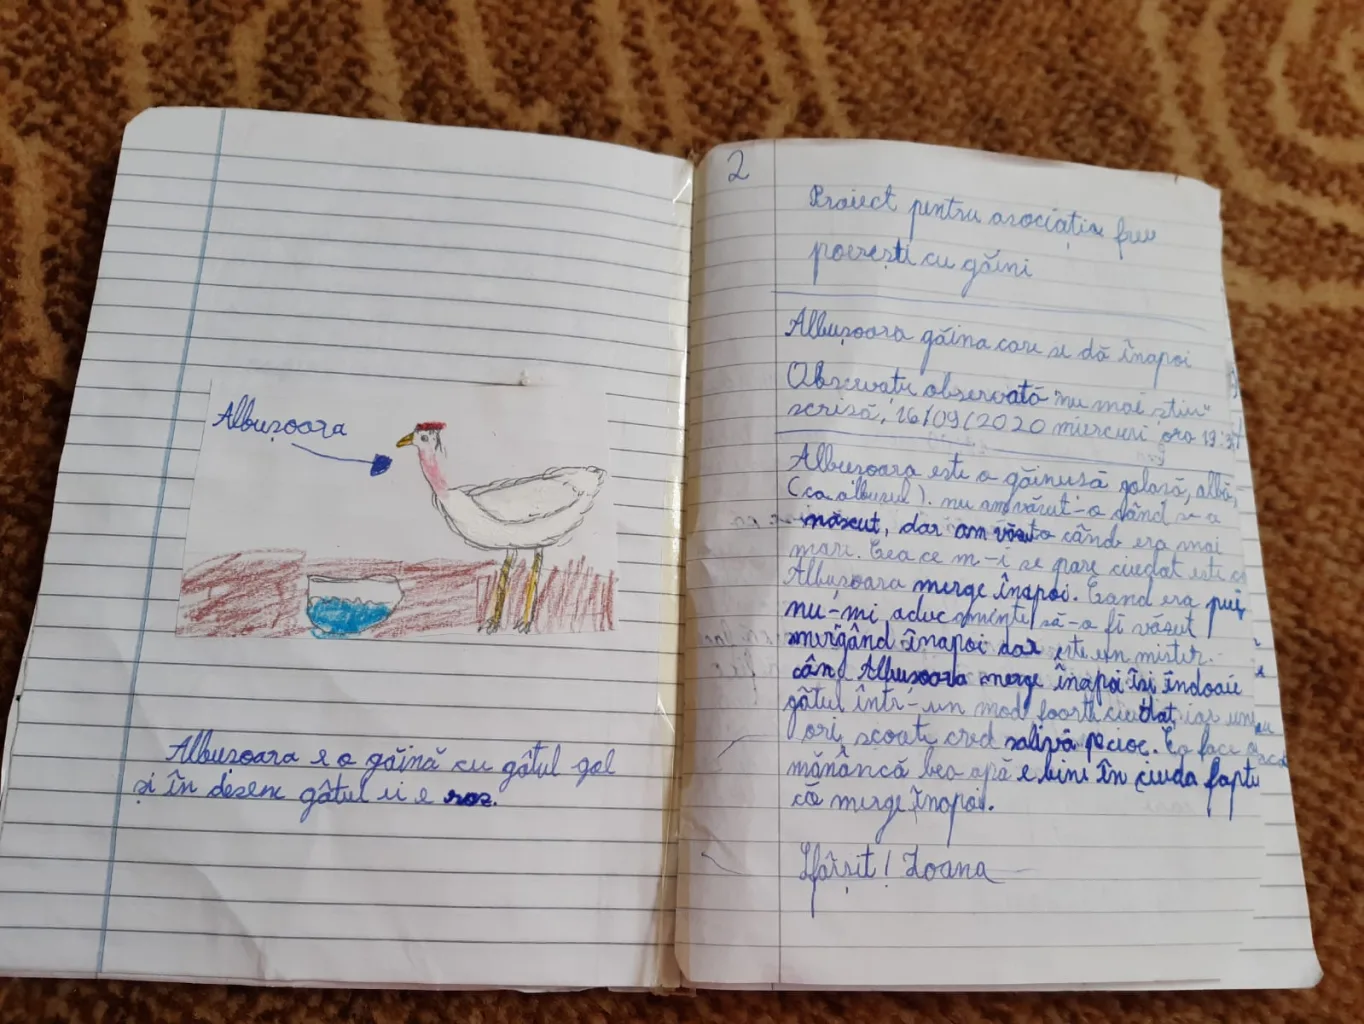 Albușoara
Albușoara e o găină cu gâtul gol
și în desen gâtul ei e roz.
2
Proiect pentru asociația free
poezești cu găini
Albușoara găina care se dă înapoi
Observație observată "nu mai știu"
scrisă, 16/09/2020 miercuri ora 19:37
Albușoara este o găinușă golașă, albă,
(ca albușul). nu am văzut-o când s-a
născut, dar am văzut-o când era mai
mare. Ceea ce m-i se pare ciudat este că
Albușoara merge înapoi. Cand era pui
nu-mi aduc aminte să-o fi văzut
mergând înapoi dar este un mister.
când Albușoara merge înapoi își îndoaie
gâtul într-un mod foarte ciudat, iar une
ori, scoate cred salivă pe cioc. Ea face
mănâncă bea apă e bine în ciuda faptu
că merge înapoi.
Sfârșit! Ioana